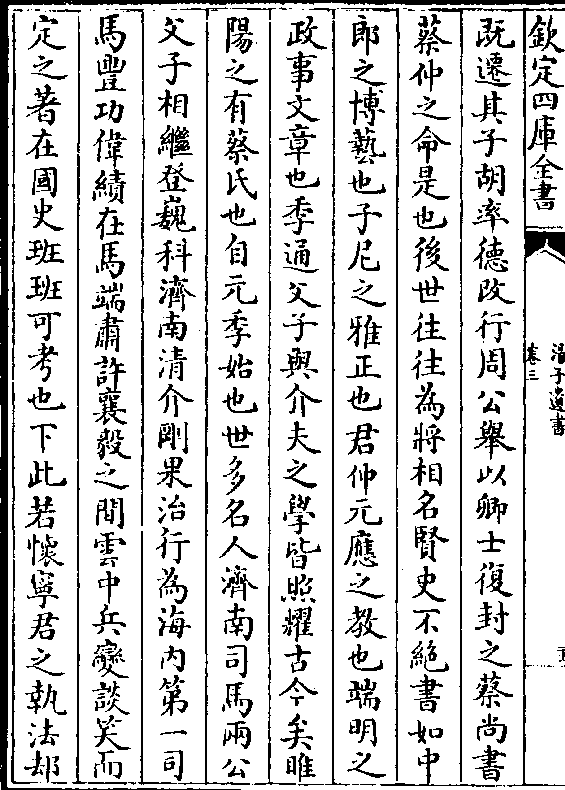 欽定四庫全書
卷三
既遷其子胡率德改行周公舉以卿士復封之蔡尚書
蔡仲之命是也後世往往為將相名賢史不絶書如中
郎之博藝也子尼之雅正也君仲元應之教也端明之
政事文章也季通父子與介夫之學皆照耀古今矣睢
陽之有蔡氏也自元季始也世多名人濟南司馬兩公
父子相繼登巍科濟南清介剛果治行為海内第一司
馬豐功偉績在馬端肅許襄毅之間雲中兵變談笑而
定之著在國史班班可考也下此若懷寧君之執法却